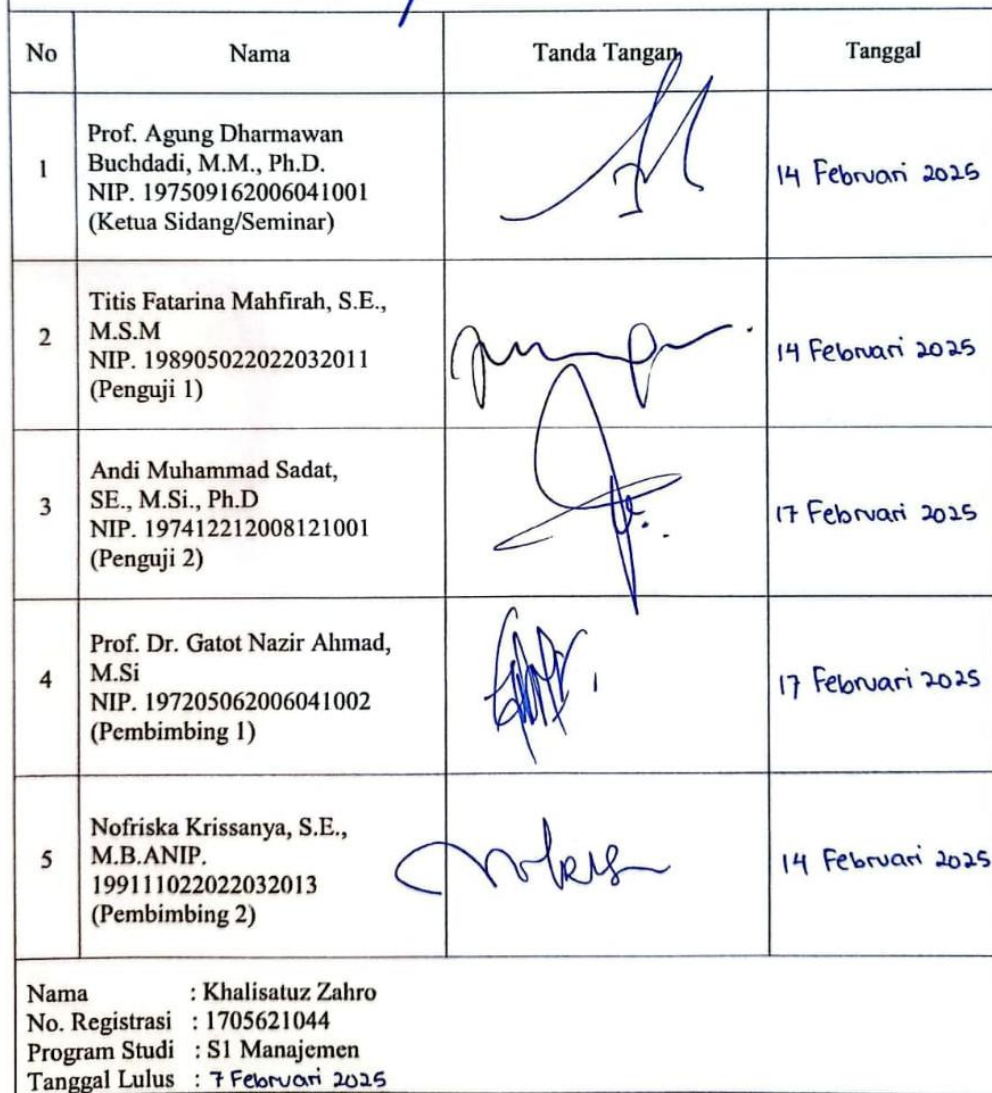 No Nama Tanda Tangan Tanggal
1
Prof. Agung Dharmawan
Buchdadi, M.M., Ph.D.
NIP. 197509162006041001
(Ketua Sidang/Seminar)
14 Februari 2025
2
Titis Fatarina Mahfirah, S.E.,
M.S.M
NIP. 198905022022032011
(Penguji 1)
14 Februari 2025
3
Andi Muhammad Sadat,
SE., M.Si., Ph.D
NIP. 197412212008121001
(Penguji 2)
17 Februari 2025
4
Prof. Dr. Gatot Nazir Ahmad,
M.Si
NIP. 197205062006041002
(Pembimbing 1)
17 Februari 2025
5
Nofriska Krissanya, S.E.,
M.B.ANIP.
199111022022032013
(Pembimbing 2)
14 Februari 2025
Nama : Khalisatuz Zahro
No. Registrasi : 1705621044
Program Studi : S1 Manajemen
Tanggal Lulus : 7 Februari 2025